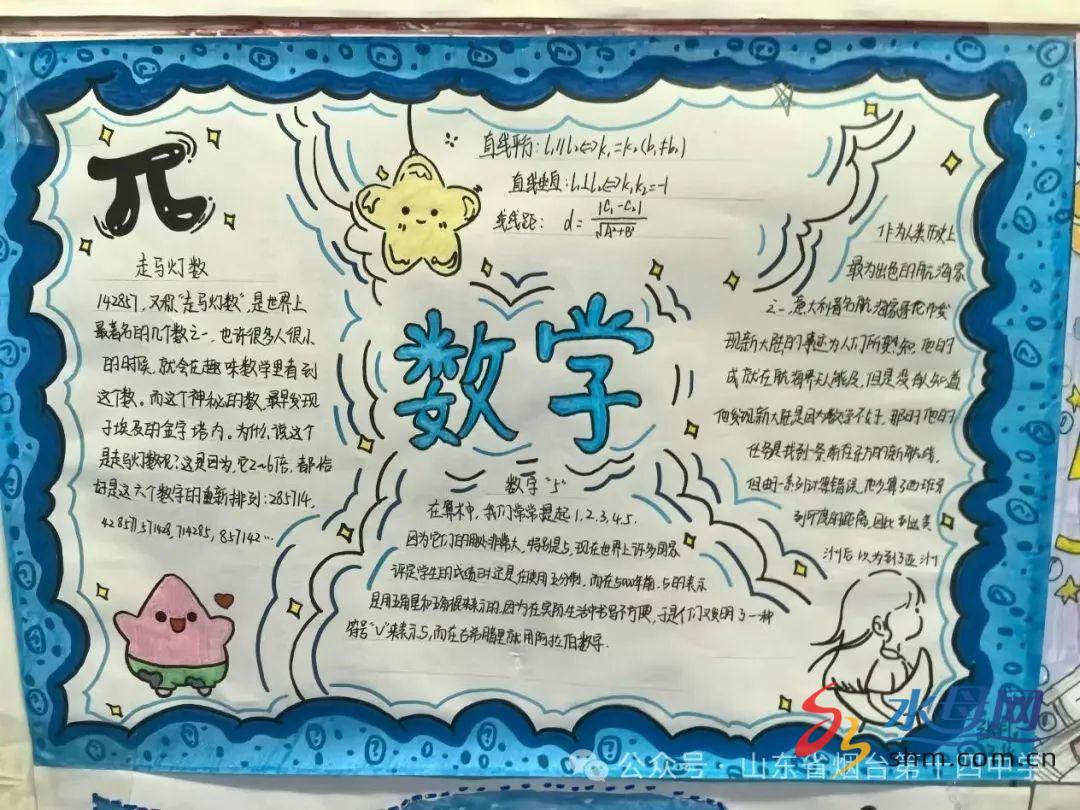 π
直线平行: l₁∥l₂⇔k₁=k₂(b₁≠b₂)
直线垂直: l₁⊥l₂⇔k₁k₂=-1
线线距: d=|C₁-C₂|/√A²+B²
走马灯数
142857,又称“走马灯数”,是世界上
最著名的几个数之一,也许很多人很小
的时候,就会在趣味数学里看到
这个数。而这个神秘的数,最早发现
于埃及的金字塔内。为什么说这个
是走马灯数呢?这是因为,它2~6倍,都恰
好是这六个数字的重新排列:285714,
428571,571428,714285,857142…
数学
数字“5”
在算术中,我们常常提起1,2,3,4,5.
因为它们的用处非常大,特别是5,现在世界上许多国家
评定学生的成绩时还是在使用五分制,而在5000年前,5的表示
是用五角星和五角棍来表示的,因为在实际生活中书写不方便,于是人们又发明了一种
符号“V”来表示5,而在古希腊里就用阿拉伯数字.
作为人类历史上
最为出色的航海家
之一,意大利著名航海家哥伦布发
现新大陆的事迹为人们所熟知,他的
成就在航海界无人能及,但是没有人知道
他发现新大陆是因为数学不好,那时他的
任务是找到一条前往东方的新航线,
但由一系列计算错误,他少算了西班牙
到印度的距离,因此到达美
洲后以为到了亚洲
水母网
shm.com.cn
公众号·山东省烟台第十四中学